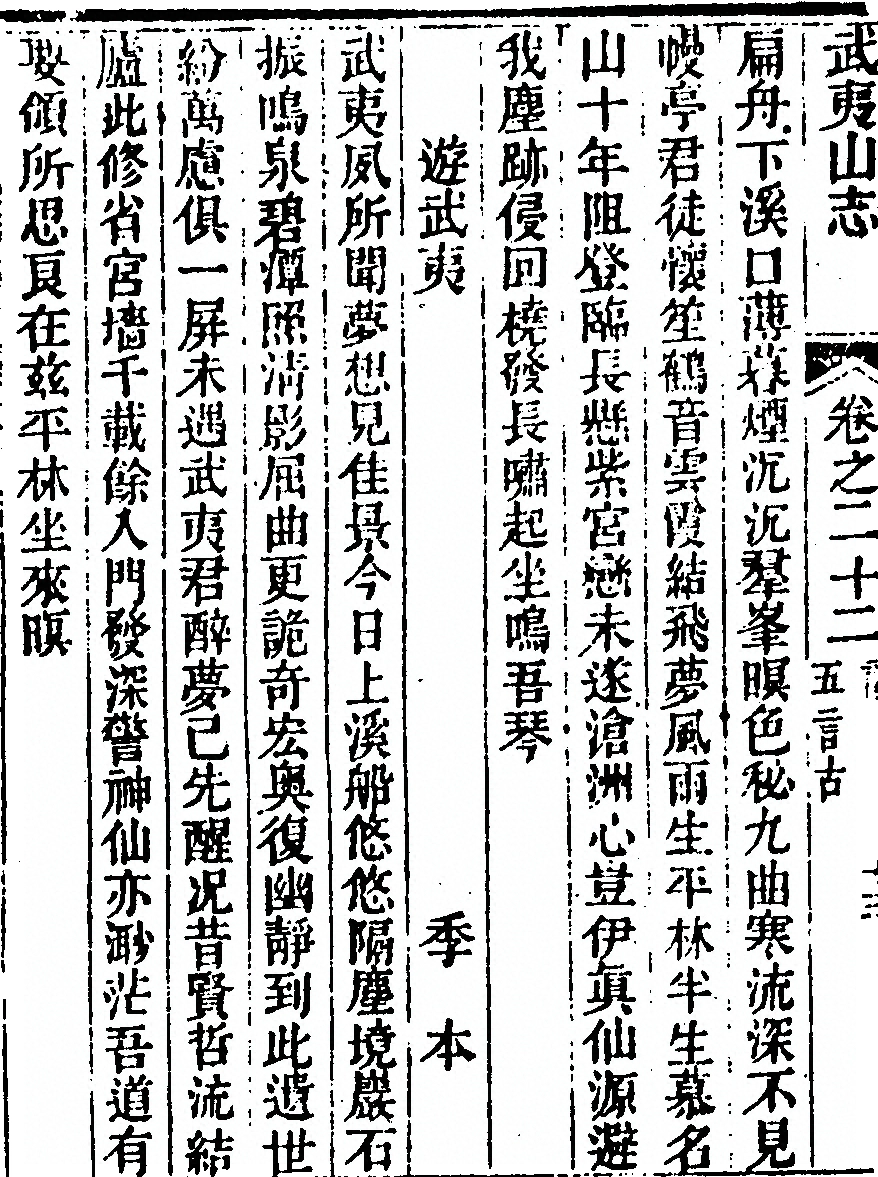 武夷山志 卷之二十二 五言古
扁舟下溪口薄暮煙沉沉羣峯暝色秘九曲寒流深不見
幔亭君徒懷笙鶴音雲霞結飛夢風雨生平林半生慕名
山十年阻登臨長懸紫宮戀未遂滄洲心豈伊眞仙源避
我塵跡侵回橈發長嘯起坐鳴吾琴
遊武夷 季本
武夷夙所聞夢想見佳景今日上溪船悠悠隔塵境巖石
振鳴泉碧潭照清影屈曲更詭奇宏奧復幽靜到此遺世
紛萬慮俱一屏未遇武夷君醉夢已先醒况昔賢哲流結
廬此修省宮墻千載餘入門發深警神仙亦渺茫吾道有
要領所思良在茲平林坐來暝